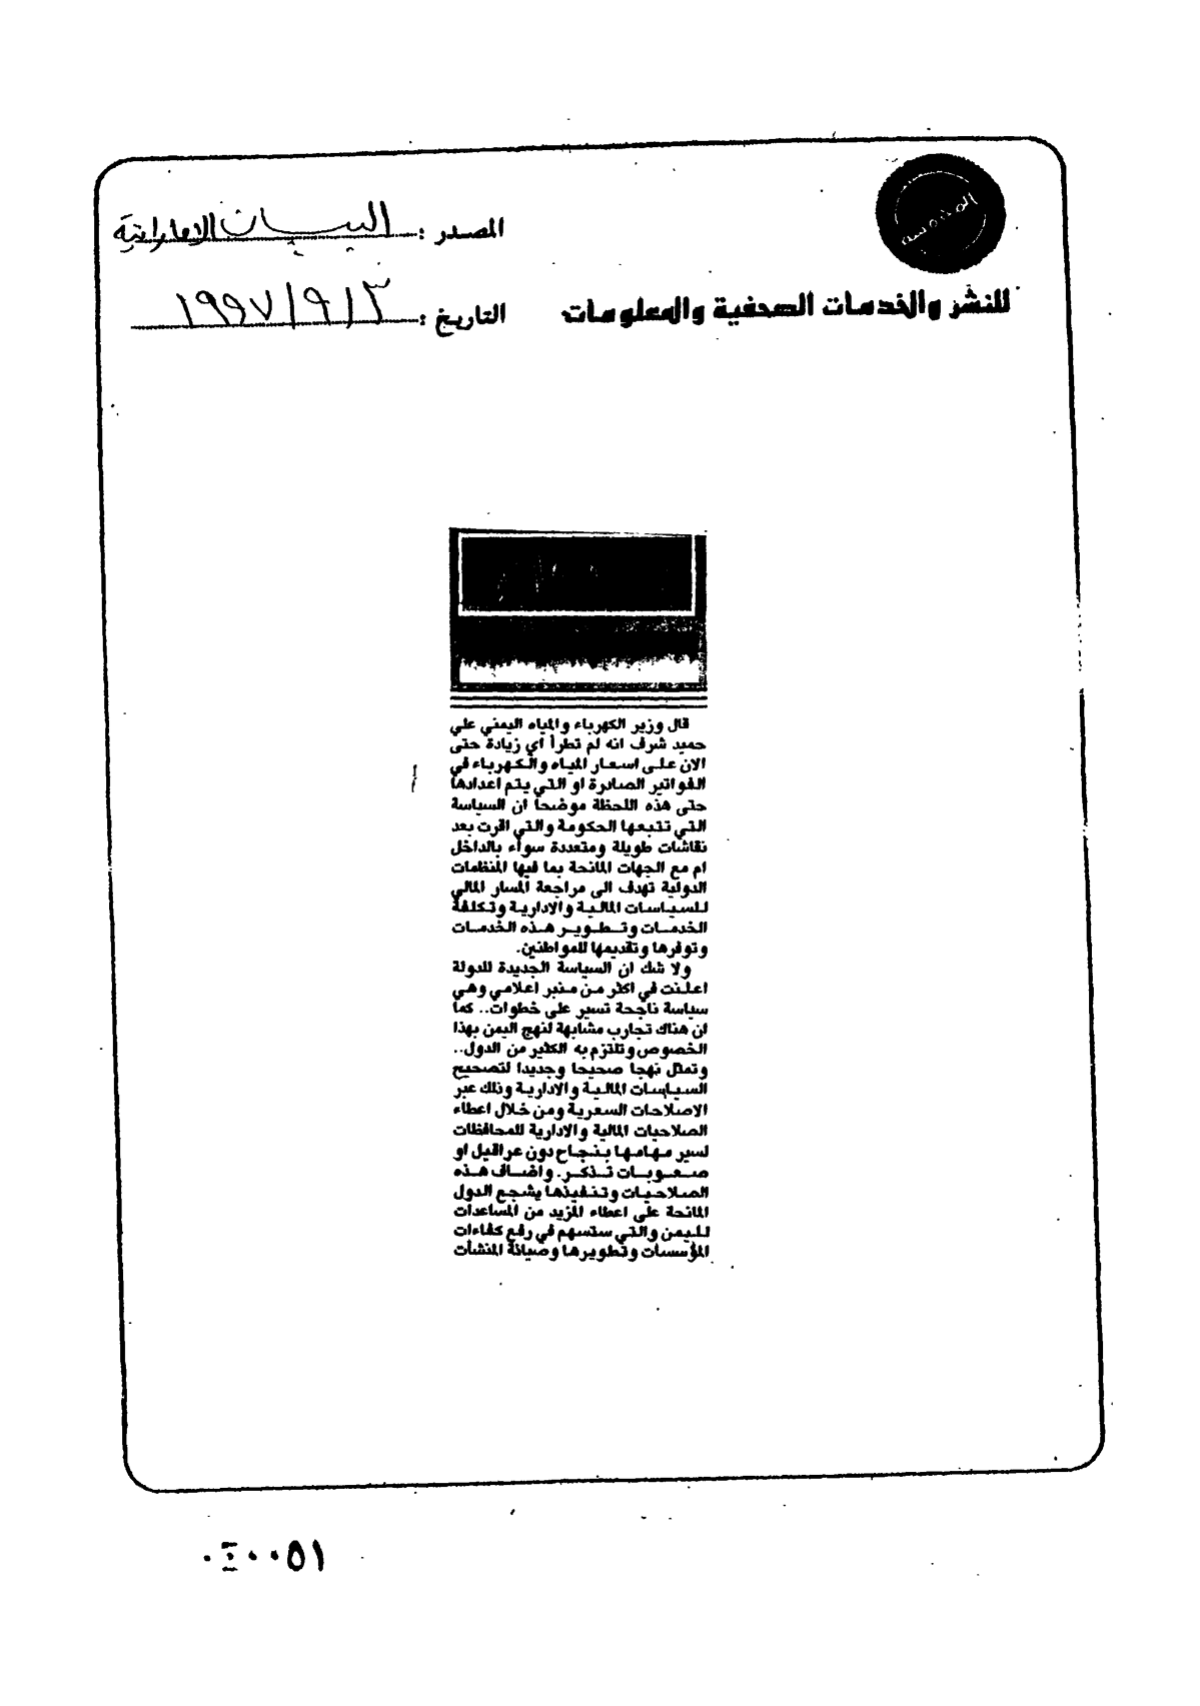 المصدر : البيان الاماراتية
للنشر والخدمات الصحفية والمعلومات
التاريخ : ٣ / ٩ / ١٩٩٧
قال وزير الكهرباء والمياه اليمني علي
حميد شرف انه لم تطرأ اي زيادة حتى
الان على اسعار المياه والكهرباء في
الفواتير الصادرة او التي يتم اعدادها
حتى هذه اللحظة موضحاً ان السياسة
التي تتبعها الحكومة والتي اقرت بعد
نقاشات طويلة ومتعددة سواء بالداخل
ام مع الجهات المانحة بما فيها المنظمات
الدولية تهدف الى مراجعة المسار المالي
للسياسات المالية والادارية وتكلفة
الخدمات وتطوير هذه الخدمات
وتوفرها وتقديمها للمواطنين.
ولا شك ان السياسة الجديدة للدولة
اعلنت في اكثر من منبر اعلامي وهي
سياسة ناجحة تسير على خطوات.. كما
ان هناك تجارب مشابهة لنهج اليمن بهذا
الخصوص وتلتزم به الكثير من الدول..
وتمثل نهجا صحيحا وجديدا لتصحيح
السياسات المالية والادارية وذلك عبر
الاصلاحات السعرية ومن خلال اعطاء
الصلاحيات المالية والادارية للمحافظات
لسير مهامها بنجاح دون عراقيل او
صعوبات تذكر. واضاف هذه
الصلاحيات وتنفيذها يشجع الدول
المانحة على اعطاء المزيد من المساعدات
لليمن والتي ستسهم في رفع كفاءات
المؤسسات وتطويرها وصيانة المنشآت